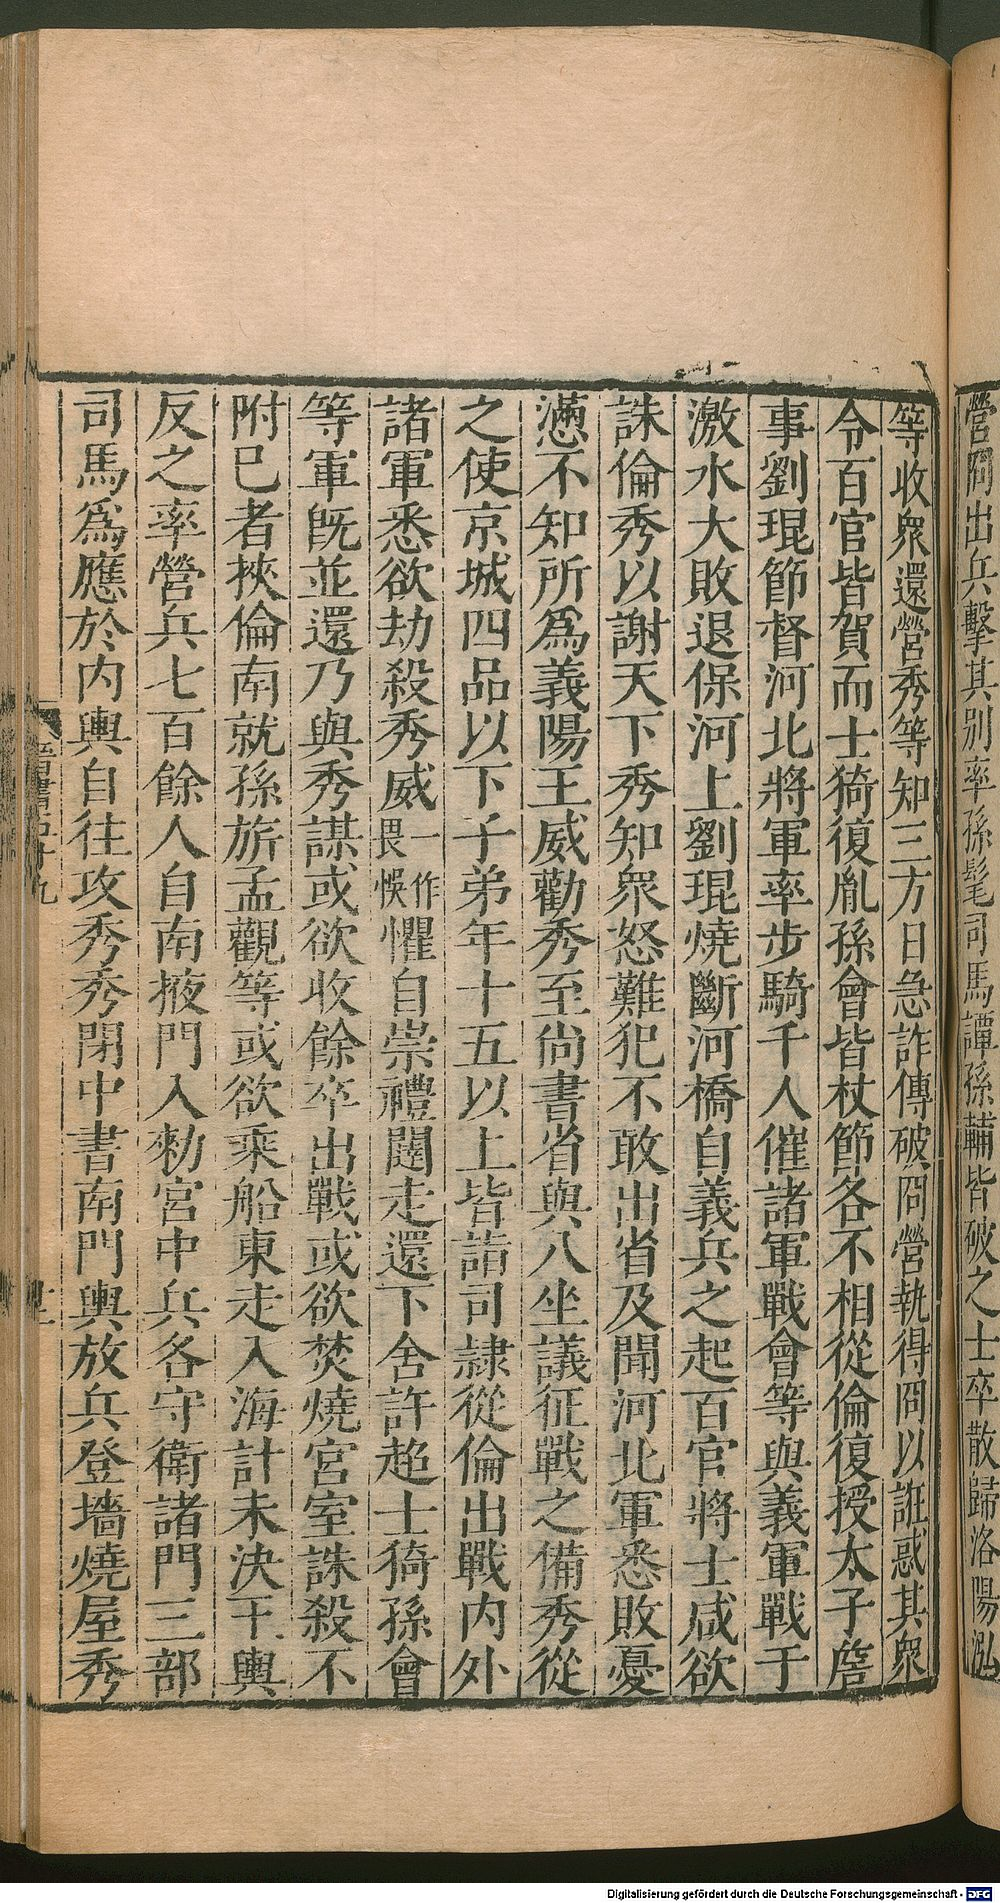 營冏出兵擊其別率孫髦司馬譚孫輔皆破之士卒散歸洛陽泓
等收衆還營秀等知三方日急詐傳破冏營執得冏以誑惑其衆
令百官皆賀而士猗復胤孫會皆杖節各不相從倫復授太子詹
事劉琨節督河北將軍率步騎千人催諸軍戰會等與義軍戰于
激水大敗退保河上劉琨燒斷河橋自義兵之起百官將士咸欲
誅倫秀以謝天下秀知衆怒難犯不敢出省及聞河北軍悉敗憂
懣不知所爲義陽王威勸秀至尚書省與八坐議征戰之備秀從
之使京城四品以下子弟年十五以上皆詣司隷從倫出戰内外
諸軍悉欲劫殺秀威一作畏悞懼自崇禮闥走還下舍許超士猗孫會
等軍旣並還乃與秀謀或欲收餘卒出戰或欲焚燒宮室誅殺不
附已者挾倫南就孫旂孟觀等或欲乘船東走入海計未決王輿
反之率營兵七百餘人自南掖門入勑宮中兵各守衛諸門三部
司馬爲應於内輿自往攻秀秀閉中書南門輿放兵登墻燒屋秀
晉書五十九
Digitalisierung gefördert durch die Deutsche Forschungsgemeinschaft - DFG